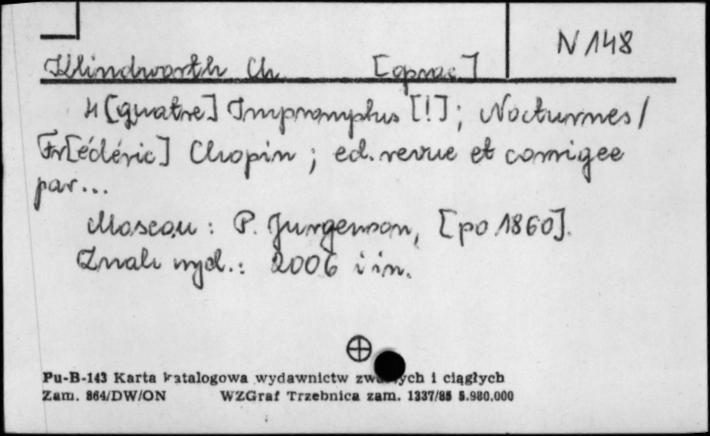 N 148
Klindworth Ch. [oprac]
4 [quatre] Impromptus [!]; Nocturnes /
Fr[édéric] Chopin ; ed. revue et corrigee
par...
Moscou : P. Jurgenson, [po 1860].
Znak wyd.: 2006 i in.
Pu-B-143 Karta katalogowa wydawnictw zwartych i ciągłych
Zam. 864/DW/ON WZGraf Trzebnica zam. 1337/85 5.980.000